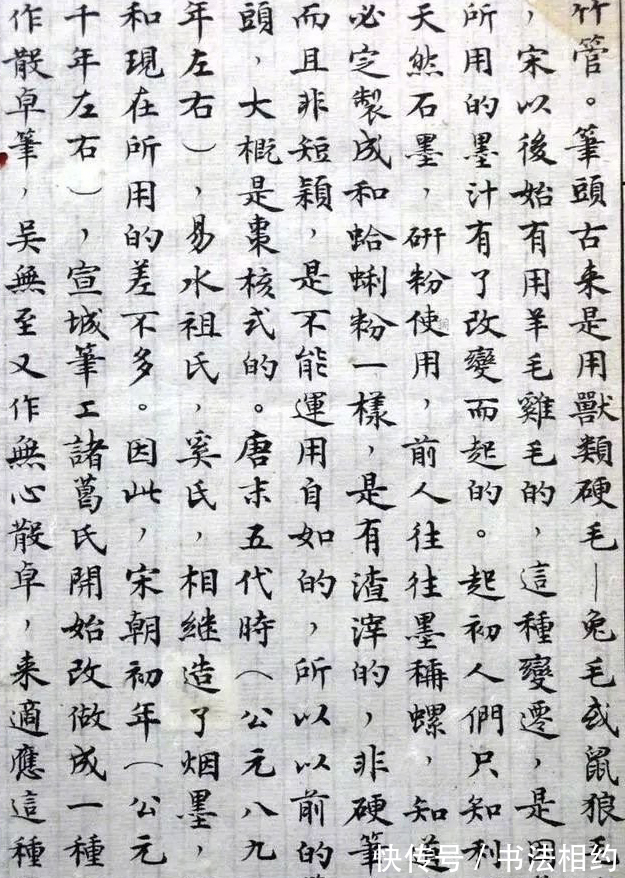 竹管。筆頭古来是用獸類硬毛—兔毛或鼠狼毛
，宋以後始有用羊毛雞毛的，這種變遷，是因
所用的墨汁有了改變而起的。起初人們只知利
天然石墨，研粉使用，前人往往墨稱螺，知道
必定製成和蛤蜊粉一樣，是有渣滓的，非硬筆
而且非短穎，是不能運用自如的，所以以前的
頭，大概是棗核式的。唐末五代時（公元八九
年左右），易水祖氏，奚氏，相継造了烟墨，
和現在所用的差不多。因此，宋朝初年（公元
千年左右），宣城筆工諸葛氏開始改做成一種
作散卓筆，吴無至又作無心散卓，来適應這種
快传号／书法相约